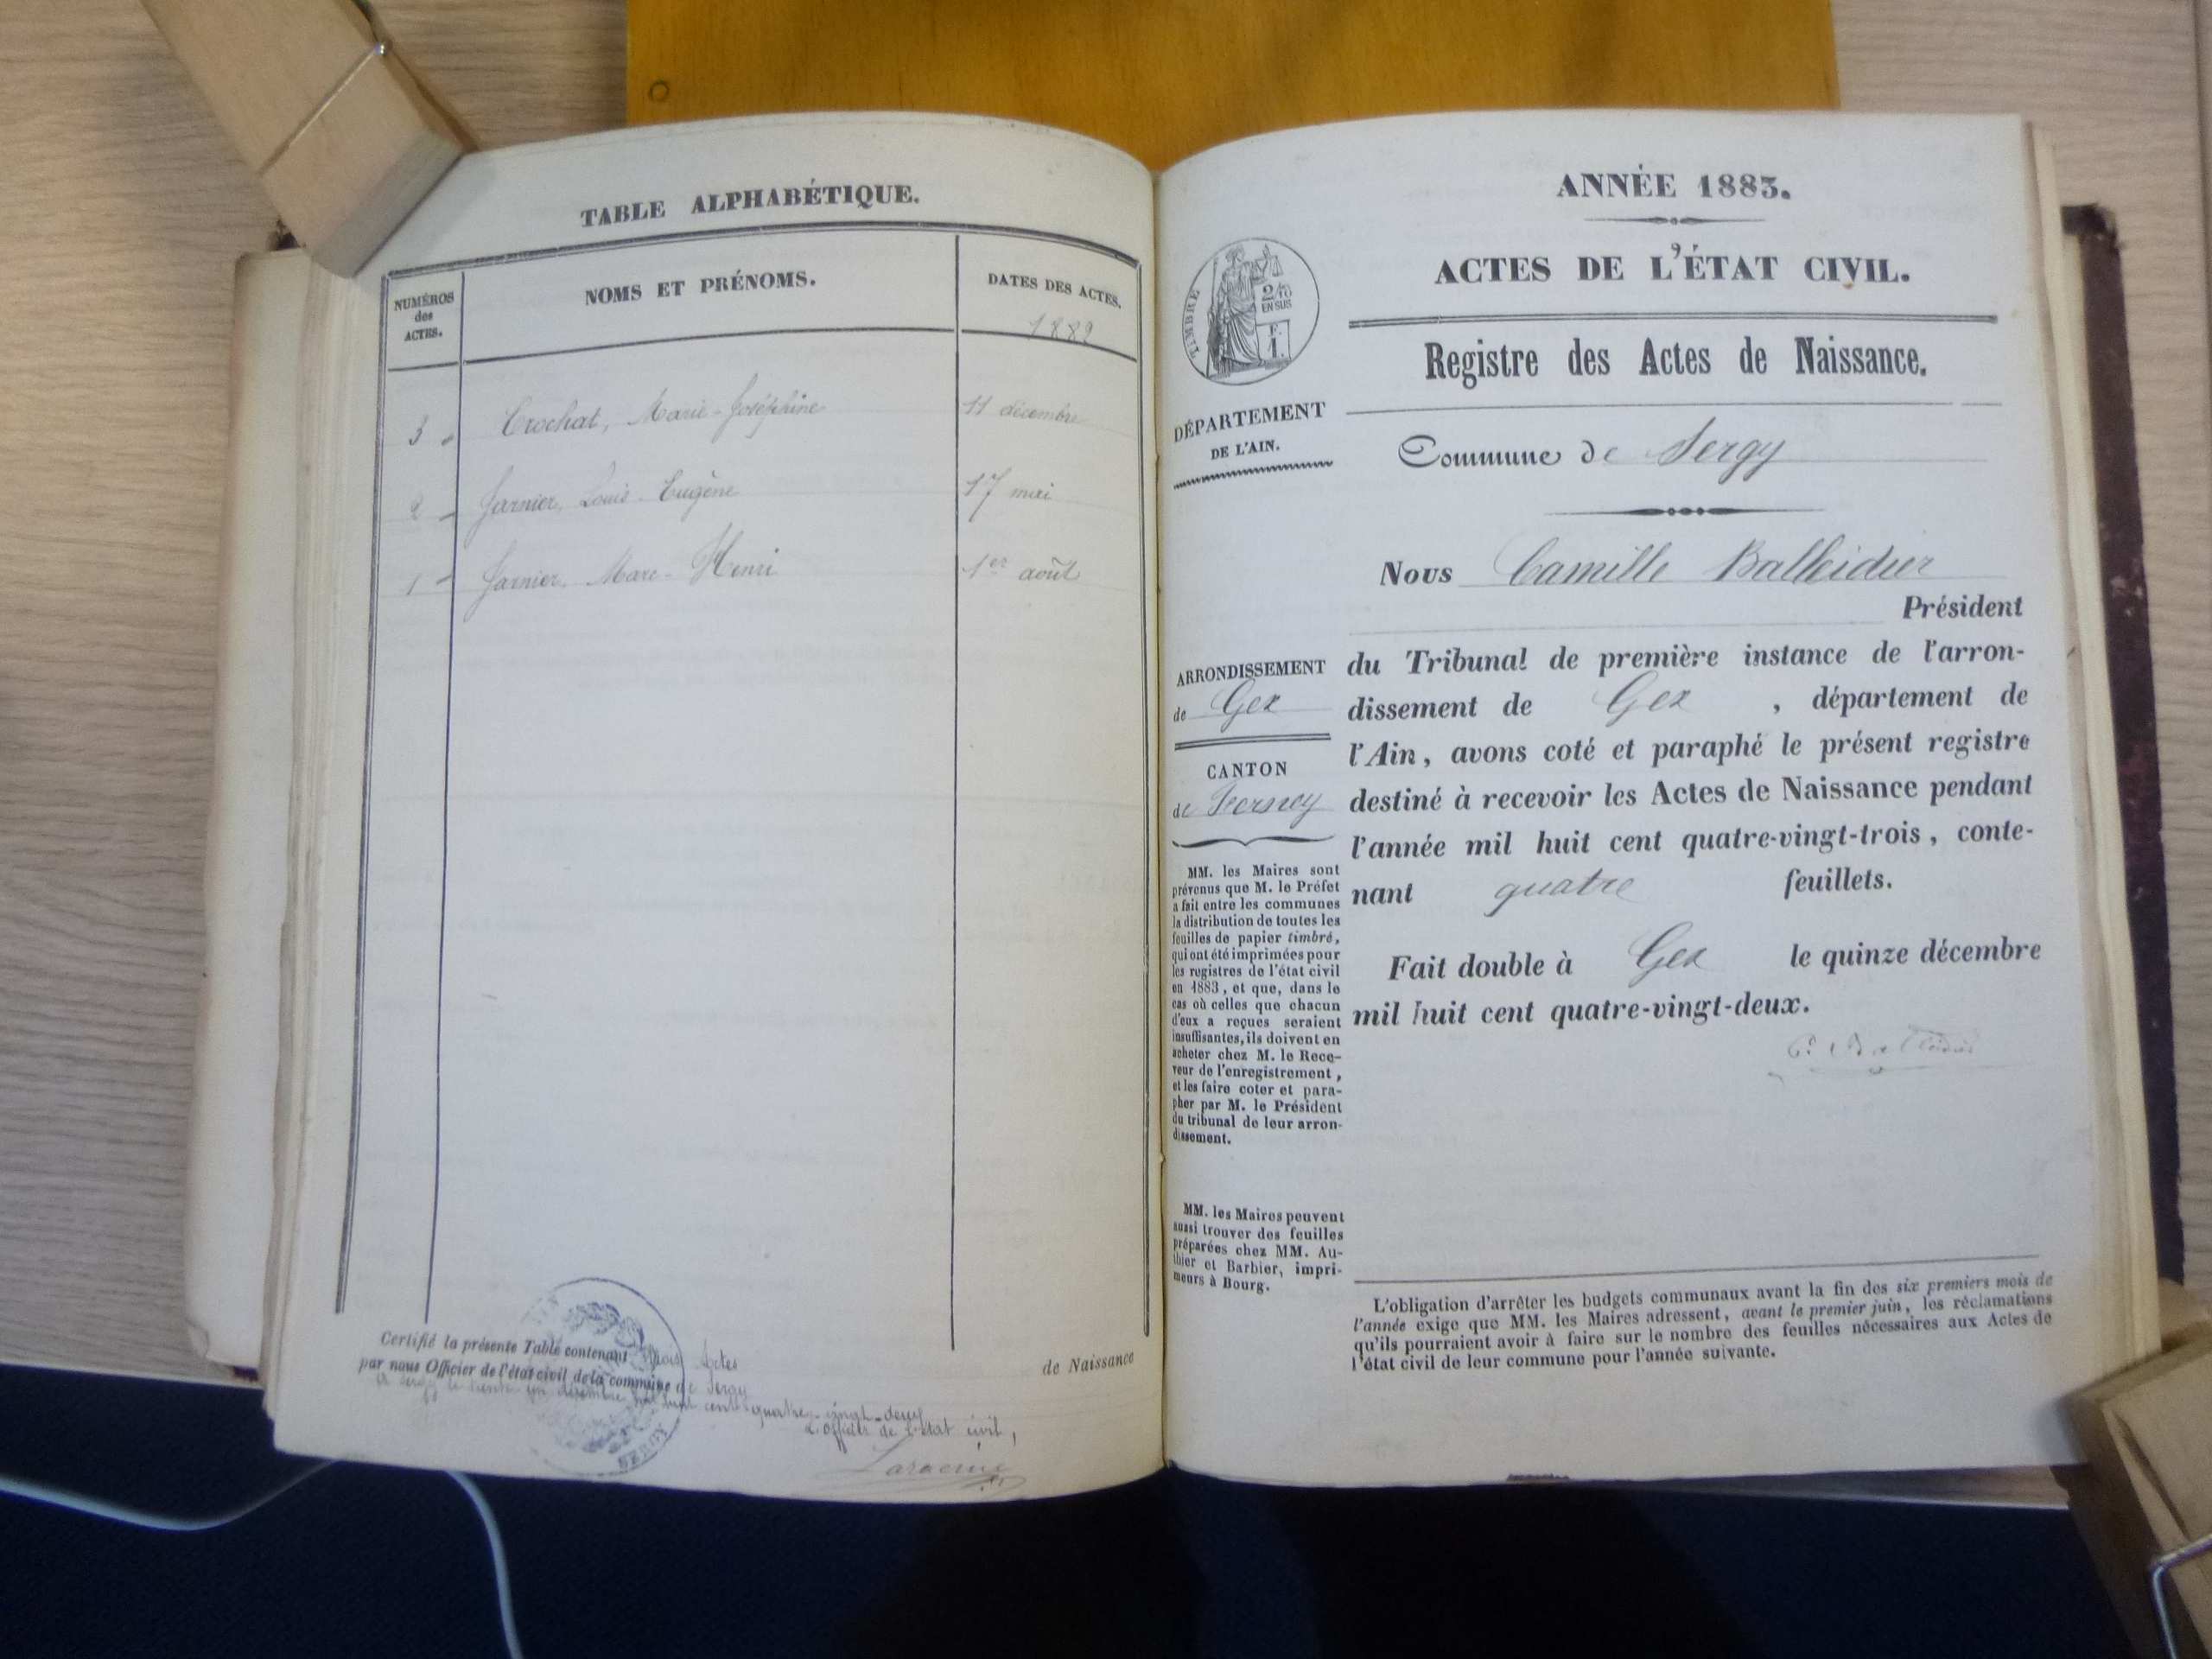 TABLE ALPHABÉTIQUE.
NUMÉROS
des
ACTES.
NOMS ET PRÉNOMS.
DATES DES ACTES.
1882
3 Crochat, Marie-Joséphine 11 décembre
2 Jarnier, Louis-Eugène 17 mai
1 Jarnier, Marc-Henri 1er août
Certifié la présente Table contenant trois Actes de Naissance
par nous Officier de l'état civil de la commune de Sergy
à Sergy le trente un décembre mil huit cent quatre-vingt-deux
L'officier de l'état civil,
SERGY
ANNÉE 1883.
ACTES DE L'ÉTAT CIVIL.
TIMBRE
2/10
EN SUS
F.
1.
Registre des Actes de Naissance.
DÉPARTEMENT
DE L'AIN.
Commune de Sergy
Nous Camille Balleidier
Président
du Tribunal de première instance de l'arron-
dissement de Gex, département de
l'Ain, avons coté et paraphé le présent registre
destiné à recevoir les Actes de Naissance pendant
l'année mil huit cent quatre-vingt-trois, conte-
nant quatre feuillets.
Fait double à Gex le quinze décembre
mil huit cent quatre-vingt-deux.
ARRONDISSEMENT
de Gex
CANTON
de Ferney
MM. les Maires sont
prévenus que M. le Préfet
a fait entre les communes
la distribution de toutes les
feuilles de papier timbré,
qui ont été imprimées pour
les registres de l'état civil
en 1883, et que, dans le
cas où celles que chacun
d'eux a reçues seraient
insuffisantes, ils doivent en
acheter chez M. le Rece-
veur de l'enregistrement,
et les faire coter et para-
pher par M. le Président
du tribunal de leur arron-
dissement.
MM. les Maires peuvent
aussi trouver des feuilles
préparées chez MM. Au-
thier et Barbier, impri-
meurs à Bourg.
L'obligation d'arrêter les budgets communaux avant la fin des six premiers mois de
l'année exige que MM. les Maires adressent, avant le premier juin, les réclamations
qu'ils pourraient avoir à faire sur le nombre des feuilles nécessaires aux Actes de
l'état civil de leur commune pour l'année suivante.